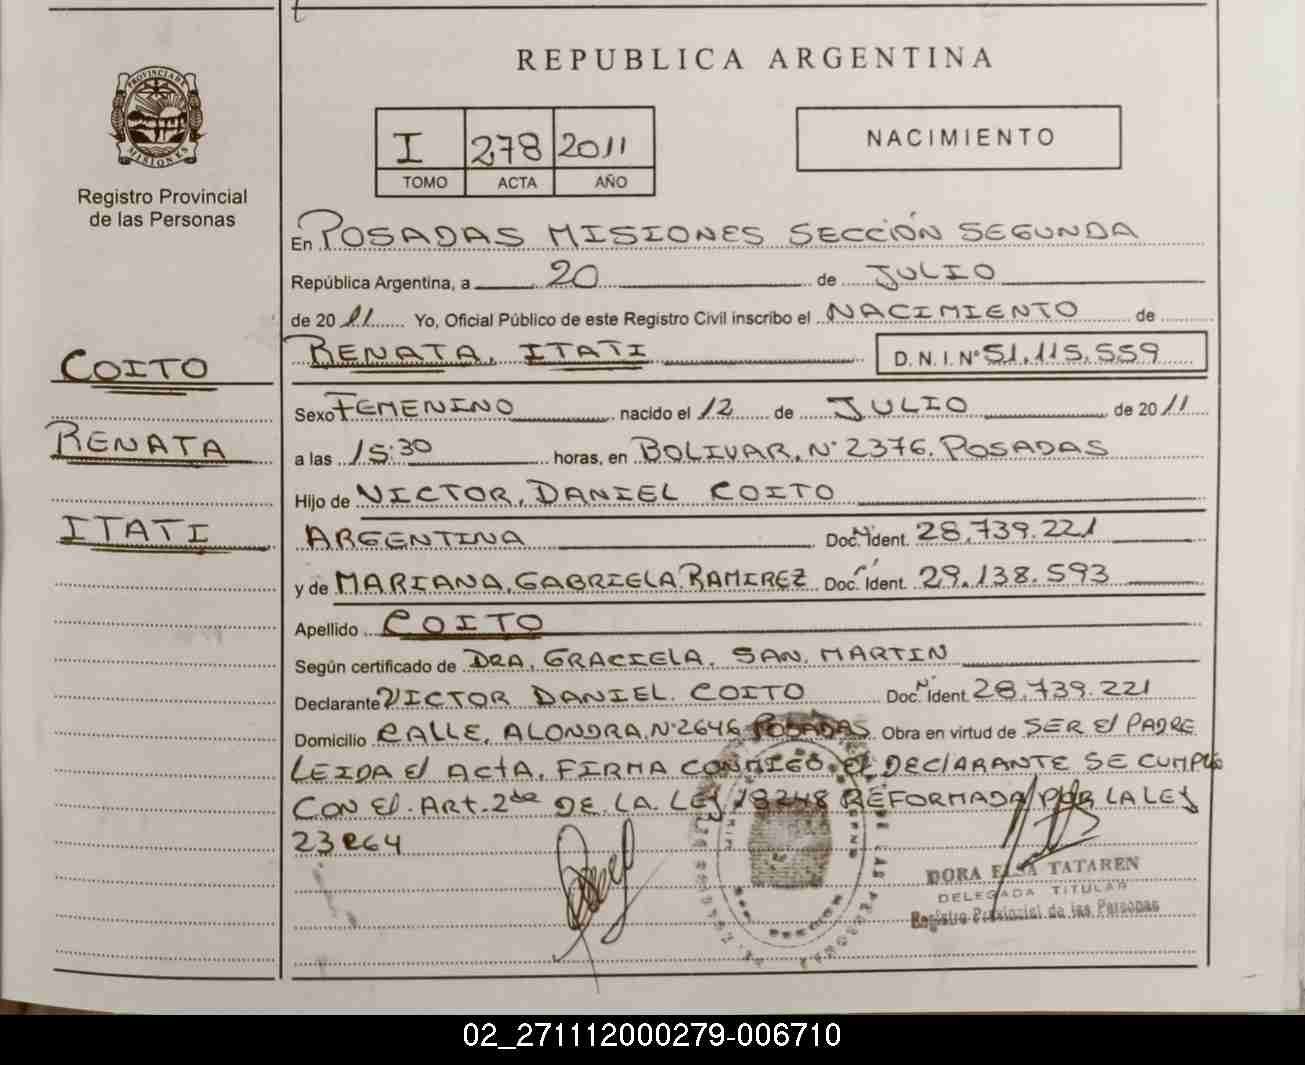 REPUBLICA ARGENTINA
PROVINCIA DE MISIONES
Registro Provincial
de las Personas
I 278 2011
TOMO ACTA AÑO
NACIMIENTO
En POSADAS MISIONES SECCIÓN SEGUNDA
República Argentina, a 20 de JULIO
de 2011 Yo, Oficial Público de este Registro Civil inscribo el NACIMIENTO de
RENATA, ITATI D.N.I. N° 51.115.559
COITO
RENATA
ITATI
Sexo FEMENINO nacido el 12 de JULIO de 2011
a las 15:30 horas, en BOLIVAR, N° 2376. POSADAS
Hijo de VICTOR, DANIEL COITO
ARGENTINA Doc. N° Ident. 28.739.221
y de MARIANA, GABRIELA RAMIREZ Doc. Ident. 29.138.593
Apellido COITO
Según certificado de DRA, GRACIELA, SAN, MARTIN
Declarante VICTOR DANIEL COITO Doc. N° Ident. 28.739.221
Domicilio CALLE, ALONDRA, N° 2646 POSADAS Obra en virtud de SER El PADRE
LEIDA El ACTA, FIRMA CONMIGO, El DEClARANTE SE CUMPLE
CON El. ART. 2do DE. LA. LEY 18248 REFORMADA POR LA LEY
23264
DORA ELSA TATAREN
DELEGADA TITULAR
Registro Provincial de las Personas
02_271112000279-006710